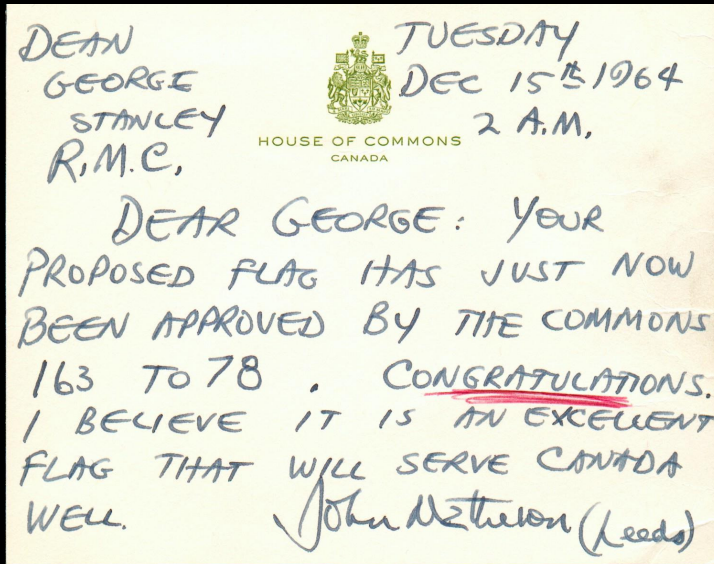 DEAN
GEORGE
STANLEY
R.M.C.
TUESDAY
DEC 15th 1964
2 A.M.
HOUSE OF COMMONS
CANADA
DEAR GEORGE: YOUR
PROPOSED FLAG HAS JUST NOW
BEEN APPROVED BY THE COMMONS
163 TO 78. CONGRATULATIONS.
I BELIEVE IT IS AN EXCELLENT
FLAG THAT WILL SERVE CANADA
WELL. John Matheson (Leeds)